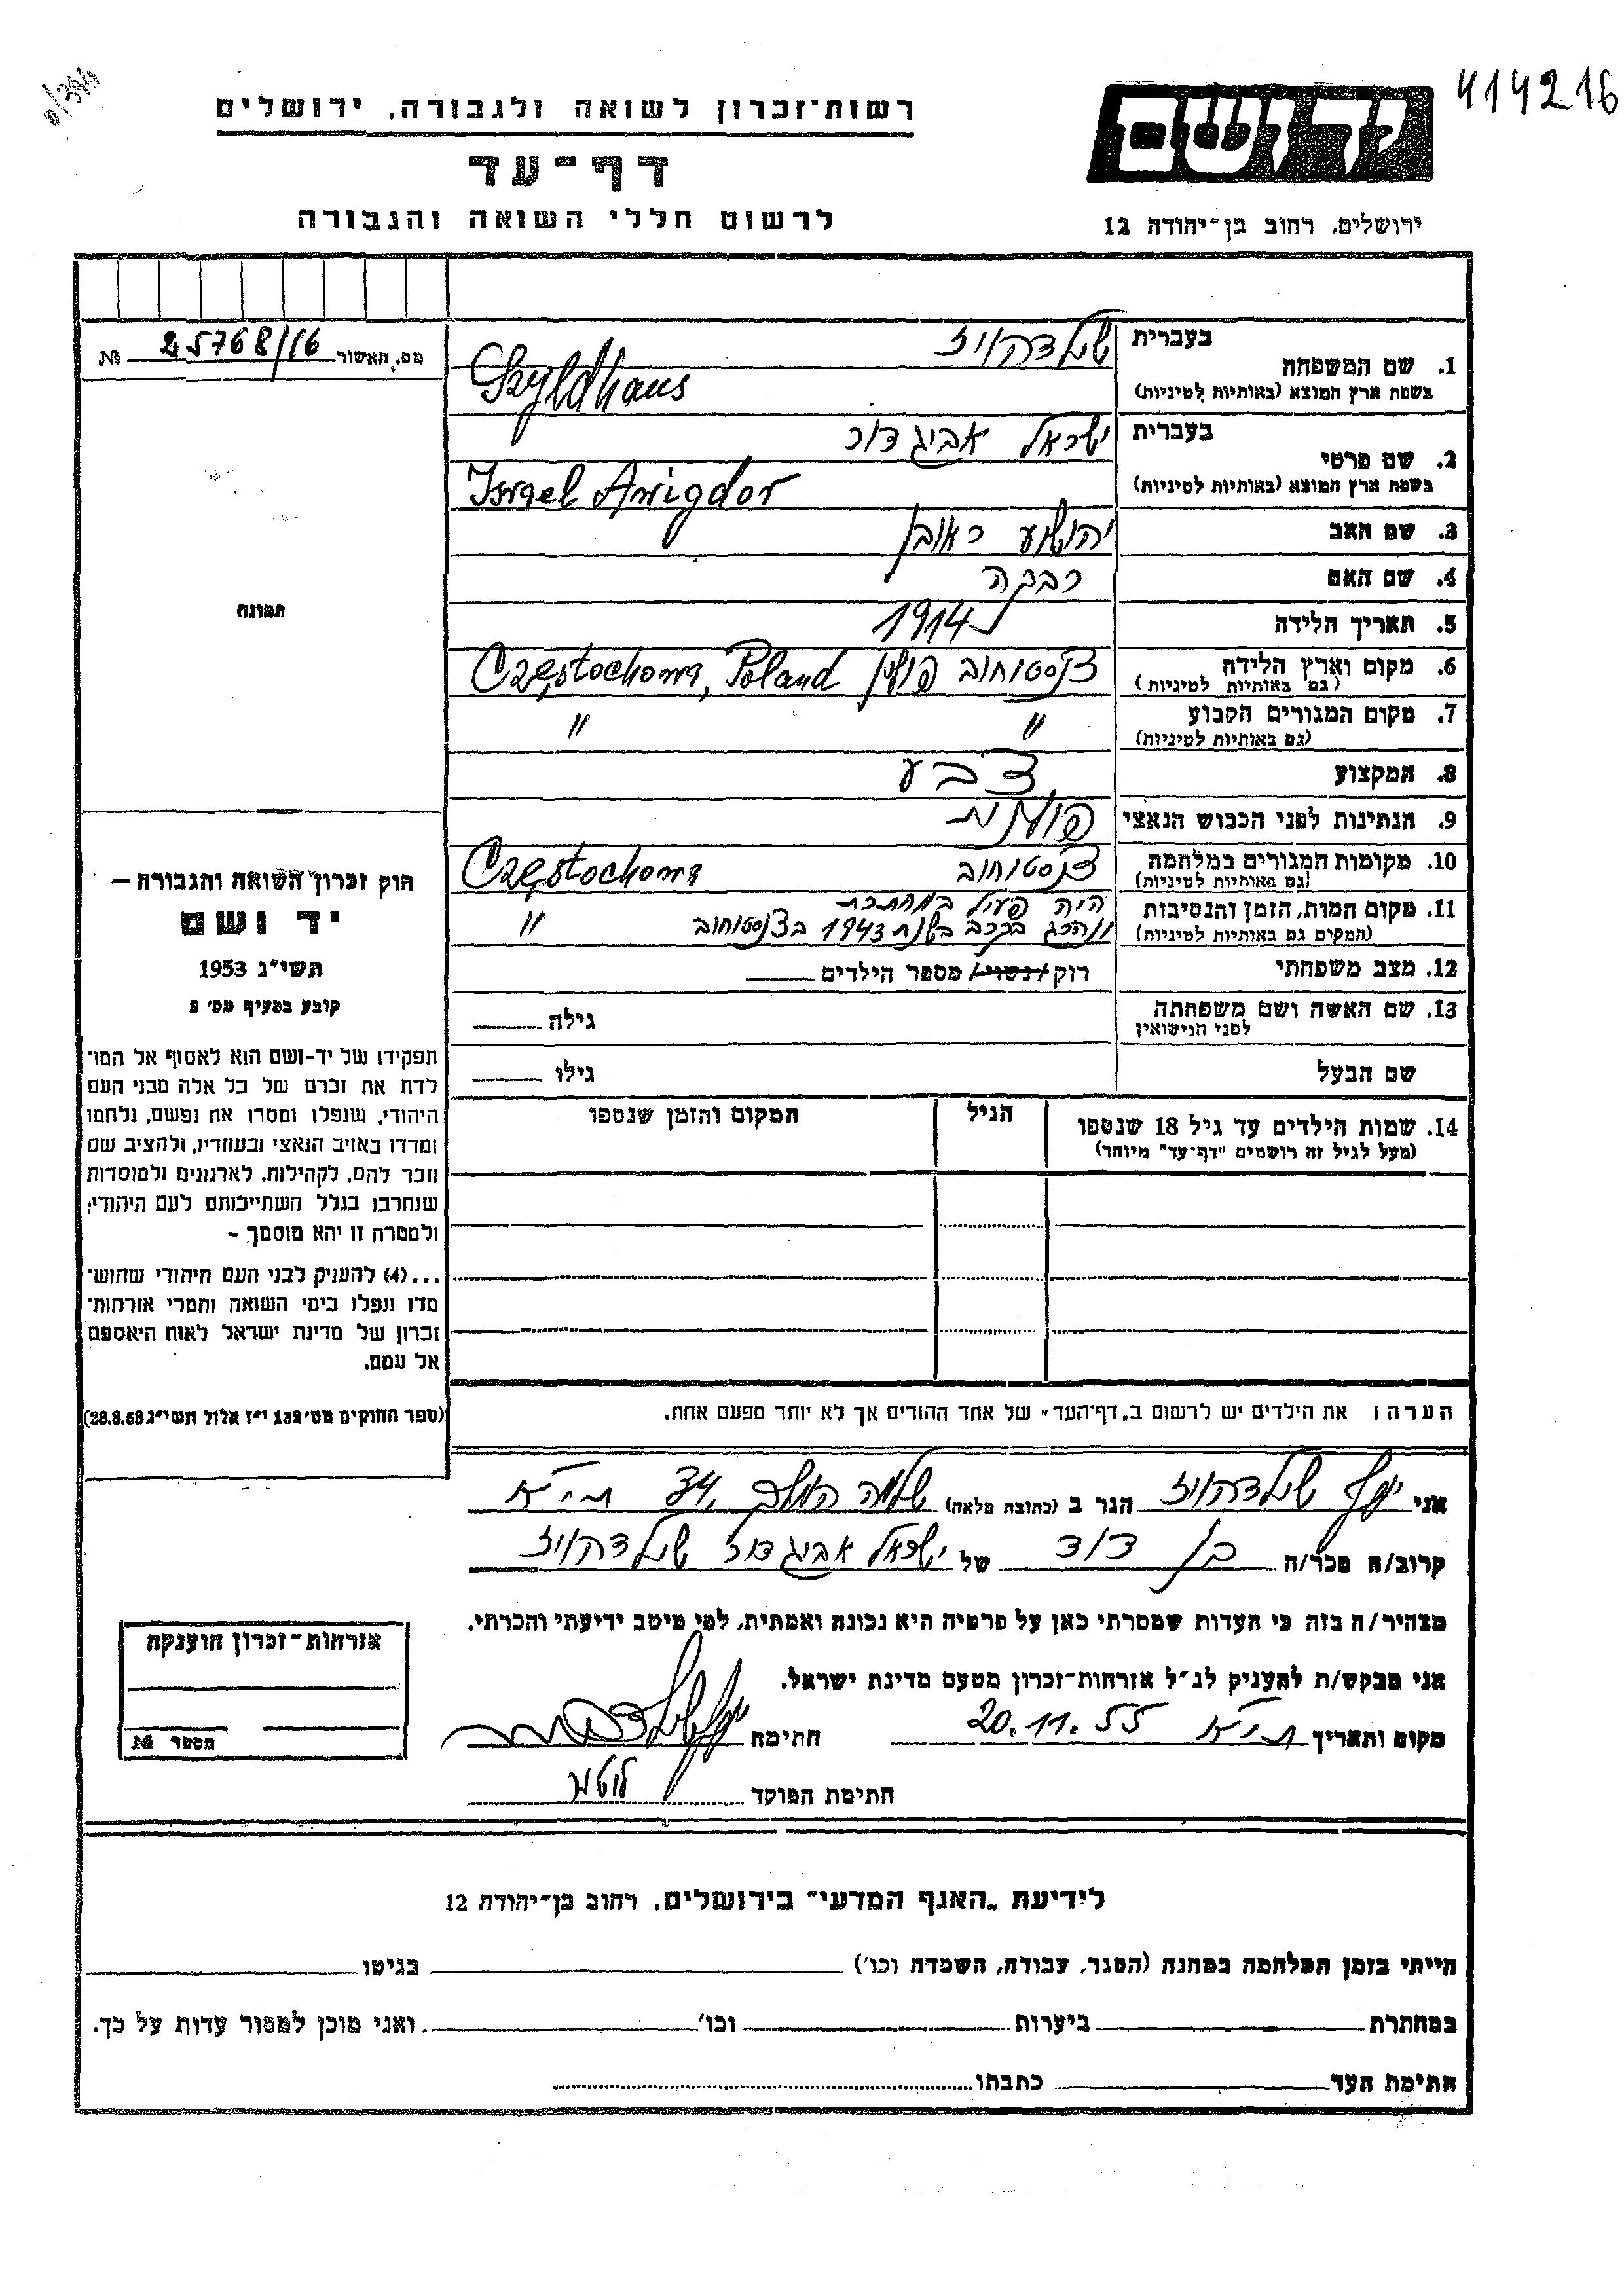 414216
רשות־זכרון לשואה ולגבורה, ירושלים
דף־עד
לרשום חללי השואה והגבורה
יד ושם
ירושלים, רחוב בן־יהודה 12
מס. האשור 25768/16 №
תמונה
חוק זכרון השואה והגבורה –
יד ושם
תשי"ג 1953
קובע בסעיף מס' 2
תפקידו של יד-ושם הוא לאסוף אל המו־
לדת את זכרם של כל אלה מבני העם
היהודי, שנפלו ומסרו את נפשם, נלחמו
ומרדו באויב הנאצי ובעוזריו, ולהציב שם
וזכר להם, לקהילות, לארגונים ולמוסדות
שנחרבו בגלל השתייכותם לעם היהודי;
ולמטרה זו יהא מוסמך –
...(4) להעניק לבני העם היהודי שהוש־
מדו ונפלו בימי השואה והמרי אזרחות־
זכרון של מדינת ישראל לאות היאספם
אל עמם.
(ספר החוקים מס' 132 י"ז אלול תשי"ג 28.8.53)
1. שם המשפחה
בעברית שילדהויז
בשפת ארץ המוצא (באותיות לטיניות) Szyldhaus
2. שם פרטי
בעברית ישראל אביגדור
בשפת ארץ המוצא (באותיות לטיניות) Israel Awigdor
3. שם האב יהושע ראובן
4. שם האם רבקה
5. תאריך הלידה 1914
6. מקום וארץ הלידה צ'נסטוחוב פולין Częstochowa, Poland
(גם באותיות לטיניות)
7. מקום המגורים הקבוע " "
(גם באותיות לטיניות)
8. המקצוע צבע
9. הנתינות לפני הכבוש הנאצי פולנית
10. מקומות המגורים במלחמה צ'נסטוחוב Częstochowa
(גם באותיות לטיניות)
11. מקום המות, הזמן והנסיבות היה פעיל במחתרת
(המקום גם באותיות לטיניות) ונהרג בקרב בשנת 1943 בצ'נסטוחוב "
12. מצב משפחתי רוק / נשוי / מספר הילדים
13. שם האשה ושם משפחתה
לפני הנישואין
גילה
שם הבעל
גילו
14. שמות הילדים עד גיל 18 שנספו
(מעל לגיל זה רושמים "דף־עד" מיוחד)
הגיל
המקום והזמן שנספו
הערה: את הילדים יש לרשום ב"דף־העד" של אחד ההורים אך לא יותר מפעם אחת.
אני יוסף שילדהויז הגר ב (כתובת מלאה) שלמה המלך 34, ת"א
קרוב/ה מכר/ה בן דוד של ישראל אביגדור שילדהויז
מצהיר/ה בזה כי העדות שמסרתי כאן על פרטיה היא נכונה ואמתית, לפי מיטב ידיעתי והכרתי.
אני מבקש/ת להעניק לנ"ל אזרחות־זכרון מטעם מדינת ישראל.
מקום ותאריך ת"א 20.11.55 חתימה
חתימת הפוקד
אזרחות־זכרון הוענקה
מספר №
לידיעת "האגף המדעי" בירושלים, רחוב בן־יהודה 12
הייתי בזמן המלחמה במחנה (הסגר, עבודה, השמדה וכו') בגיטו
במחתרת ביערות וכו' ואני מוכן למסור עדות על כך.
חתימת העד כתבתו